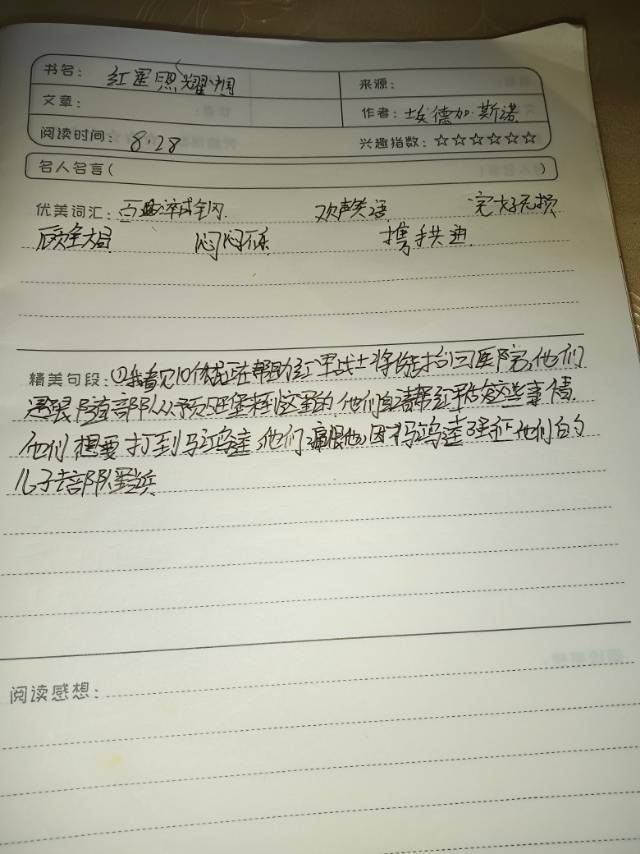 书名：红星照耀中国
来源：
文章：
作者：埃德加·斯诺
阅读时间：8.28
兴趣指数：☆☆☆☆☆☆
名人名言（ ）
优美词汇：百炼成钢 欢声笑语 完好无损
顾全大局 闷闷不乐 携手共进
精美句段：①我看见10个农民在帮助红军战士将伤员抬回医院，他们
还跟随着部队从预旺堡来到这里的，他们自请帮红军做这些事情，
他们想要打到马鸿逵，他们痛恨他，因为马鸿逵强征他们的
儿子去部队当兵
阅读感想：